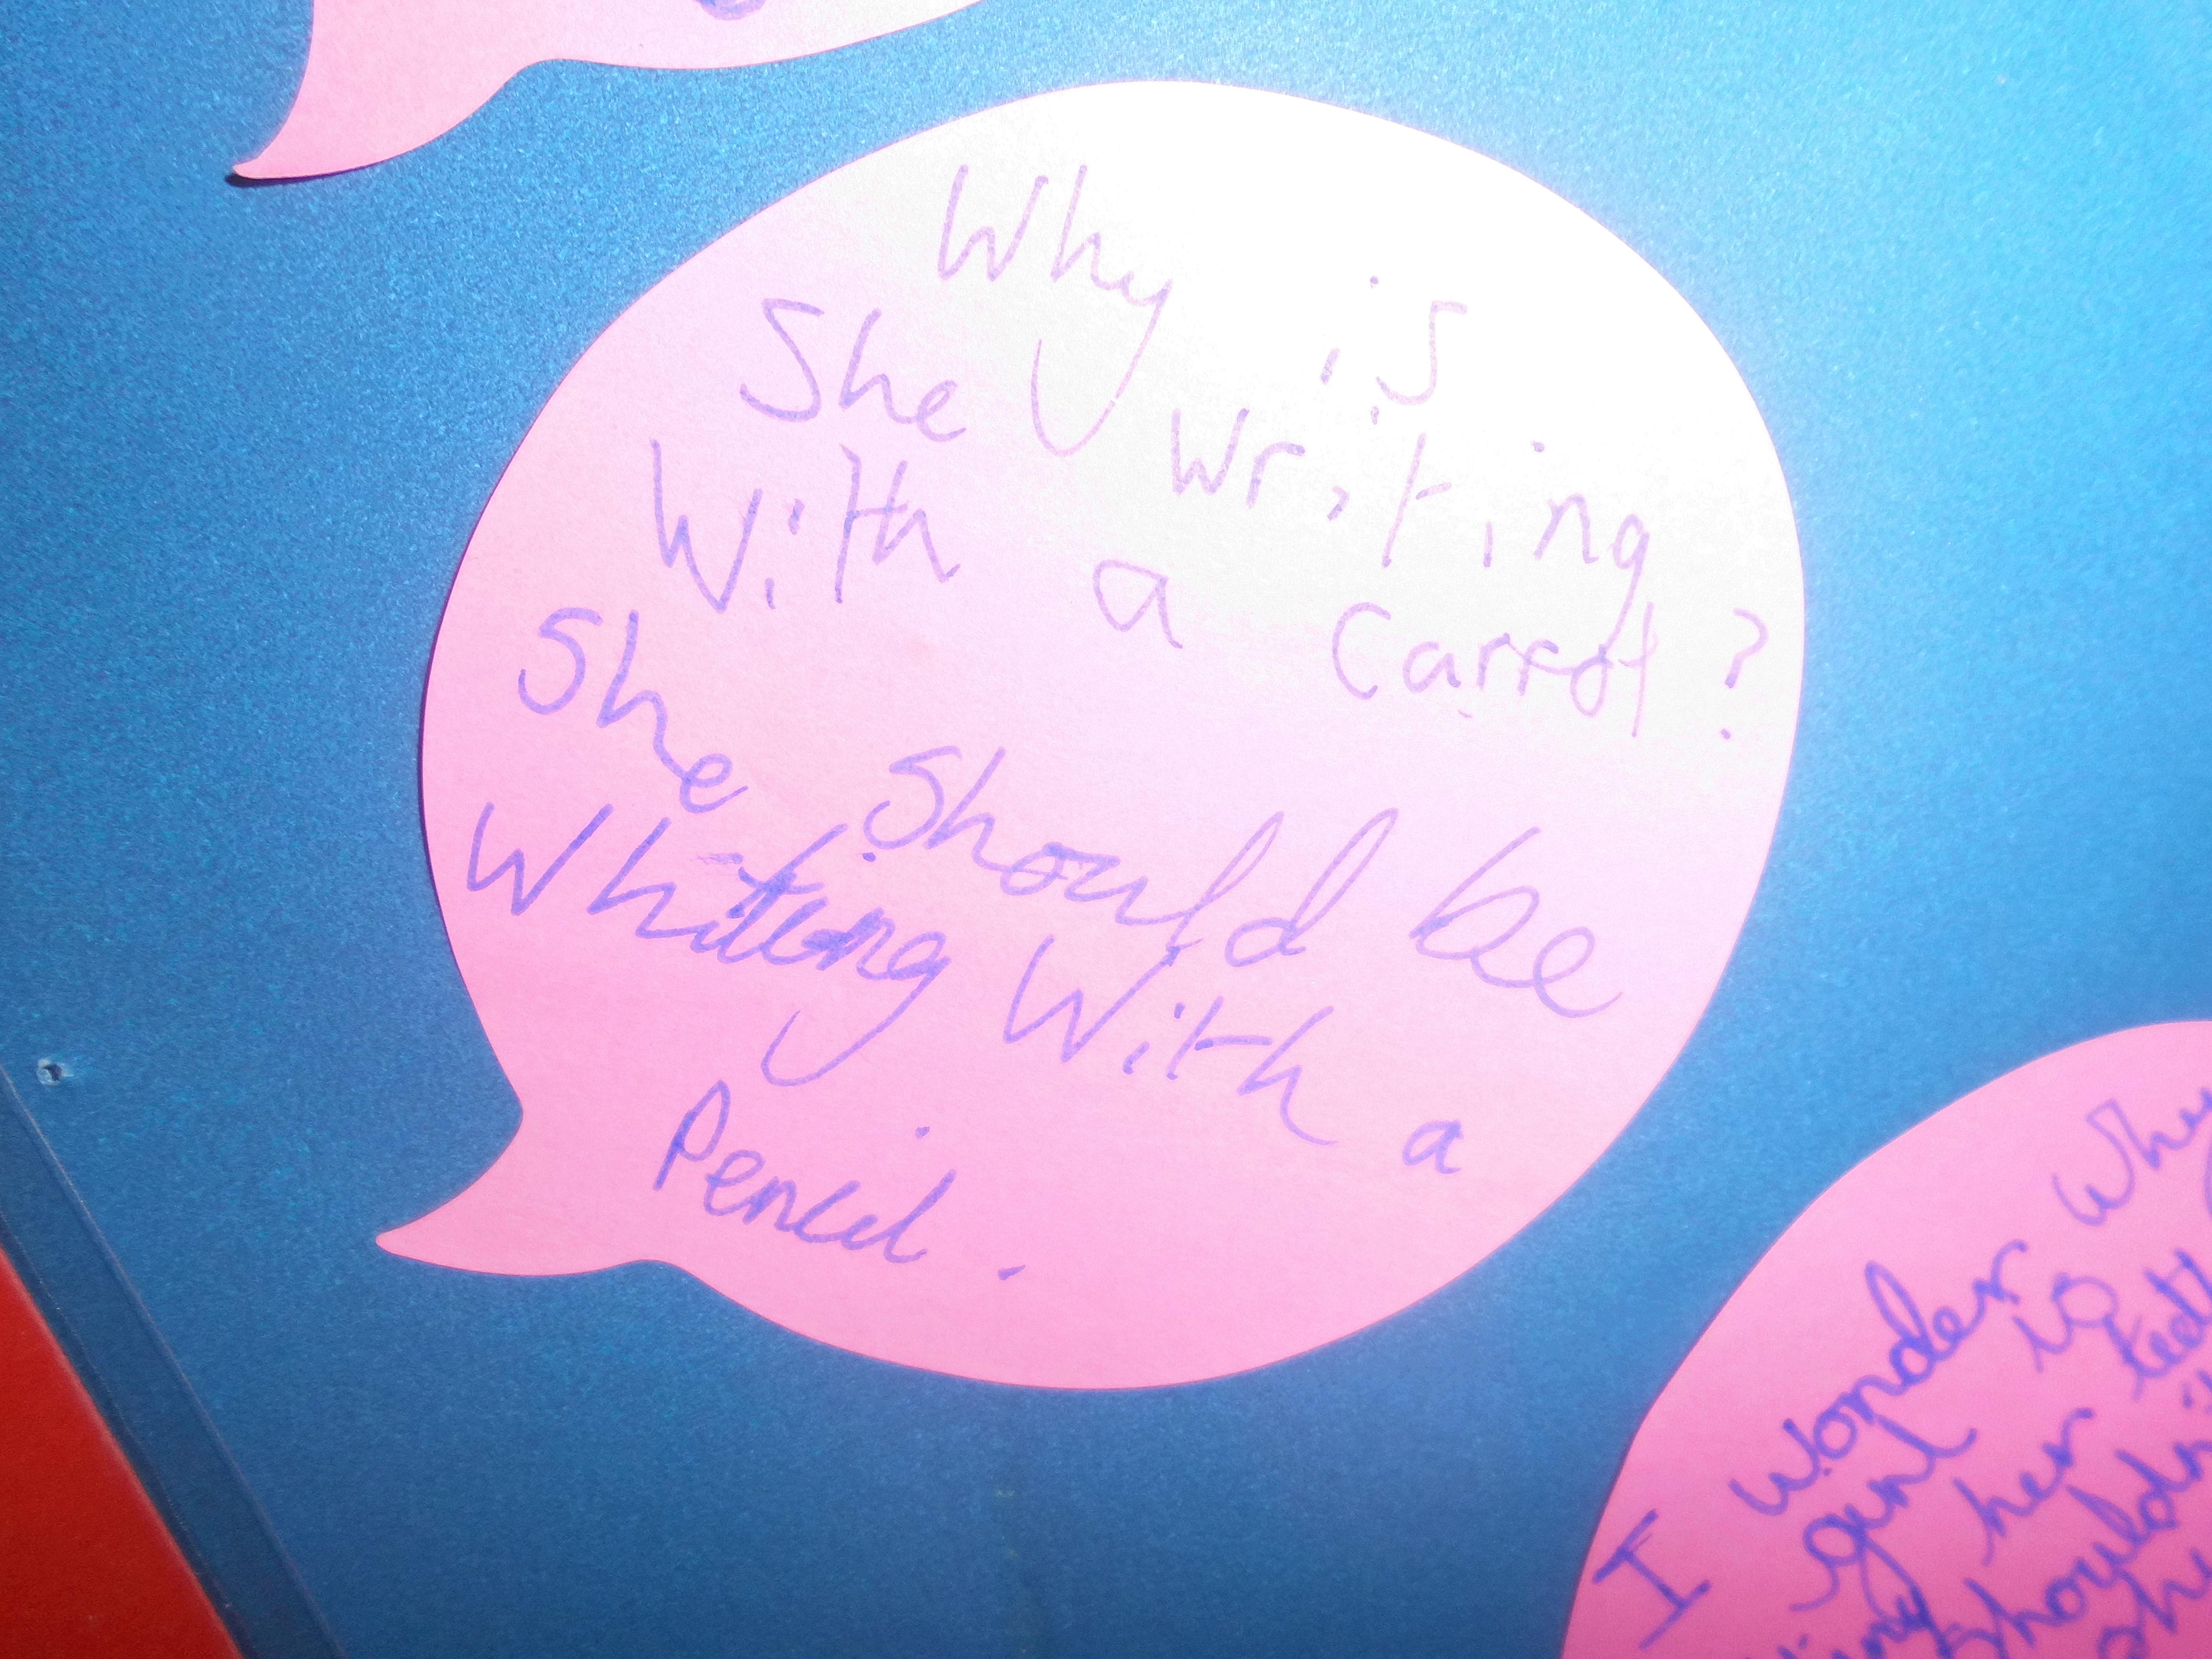 Why is
She writing
With a carrot?
She should be
Whiting With a
Pencil.
I wonder why
girl is
her